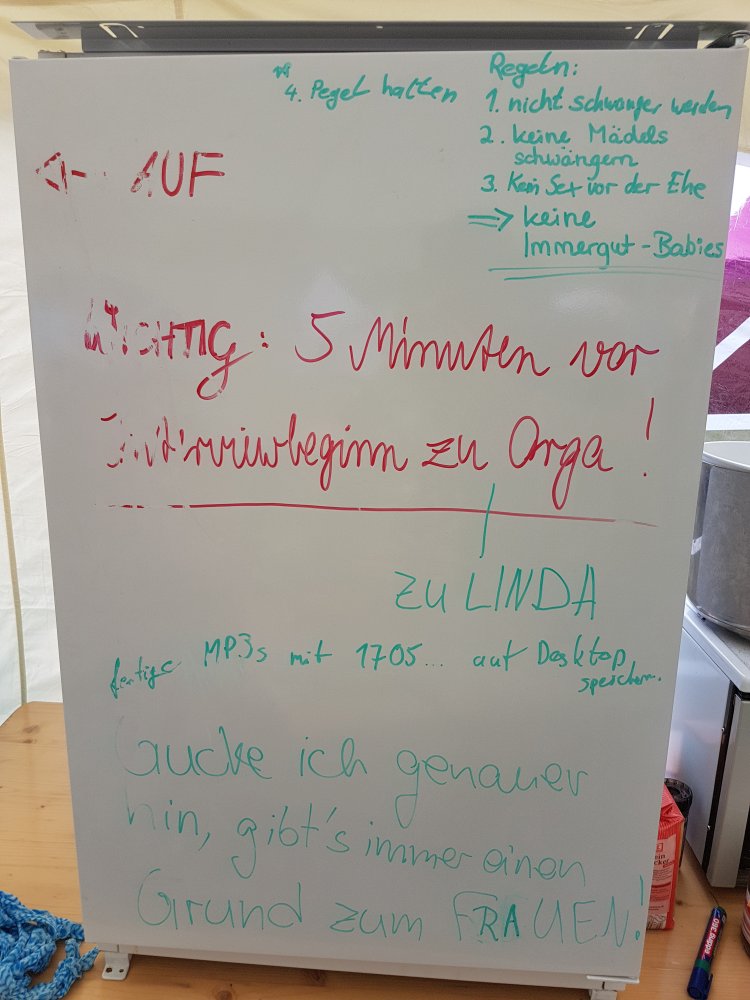 Regeln:
1. nicht schwanger werden
2. keine Mädels
schwängern
3. Kein Sex vor der Ehe
⇒ keine
Immergut-Babies
4. Pegel halten
AUF
WICHTIG: 5 Minuten vor
Interviewbeginn zu Orga!
ZU LINDA
fertige MP3s mit 1705... auf Desktop
speichern.
Gucke ich genauer
hin, gibt's immer einen
Grund zum FRAUEN!